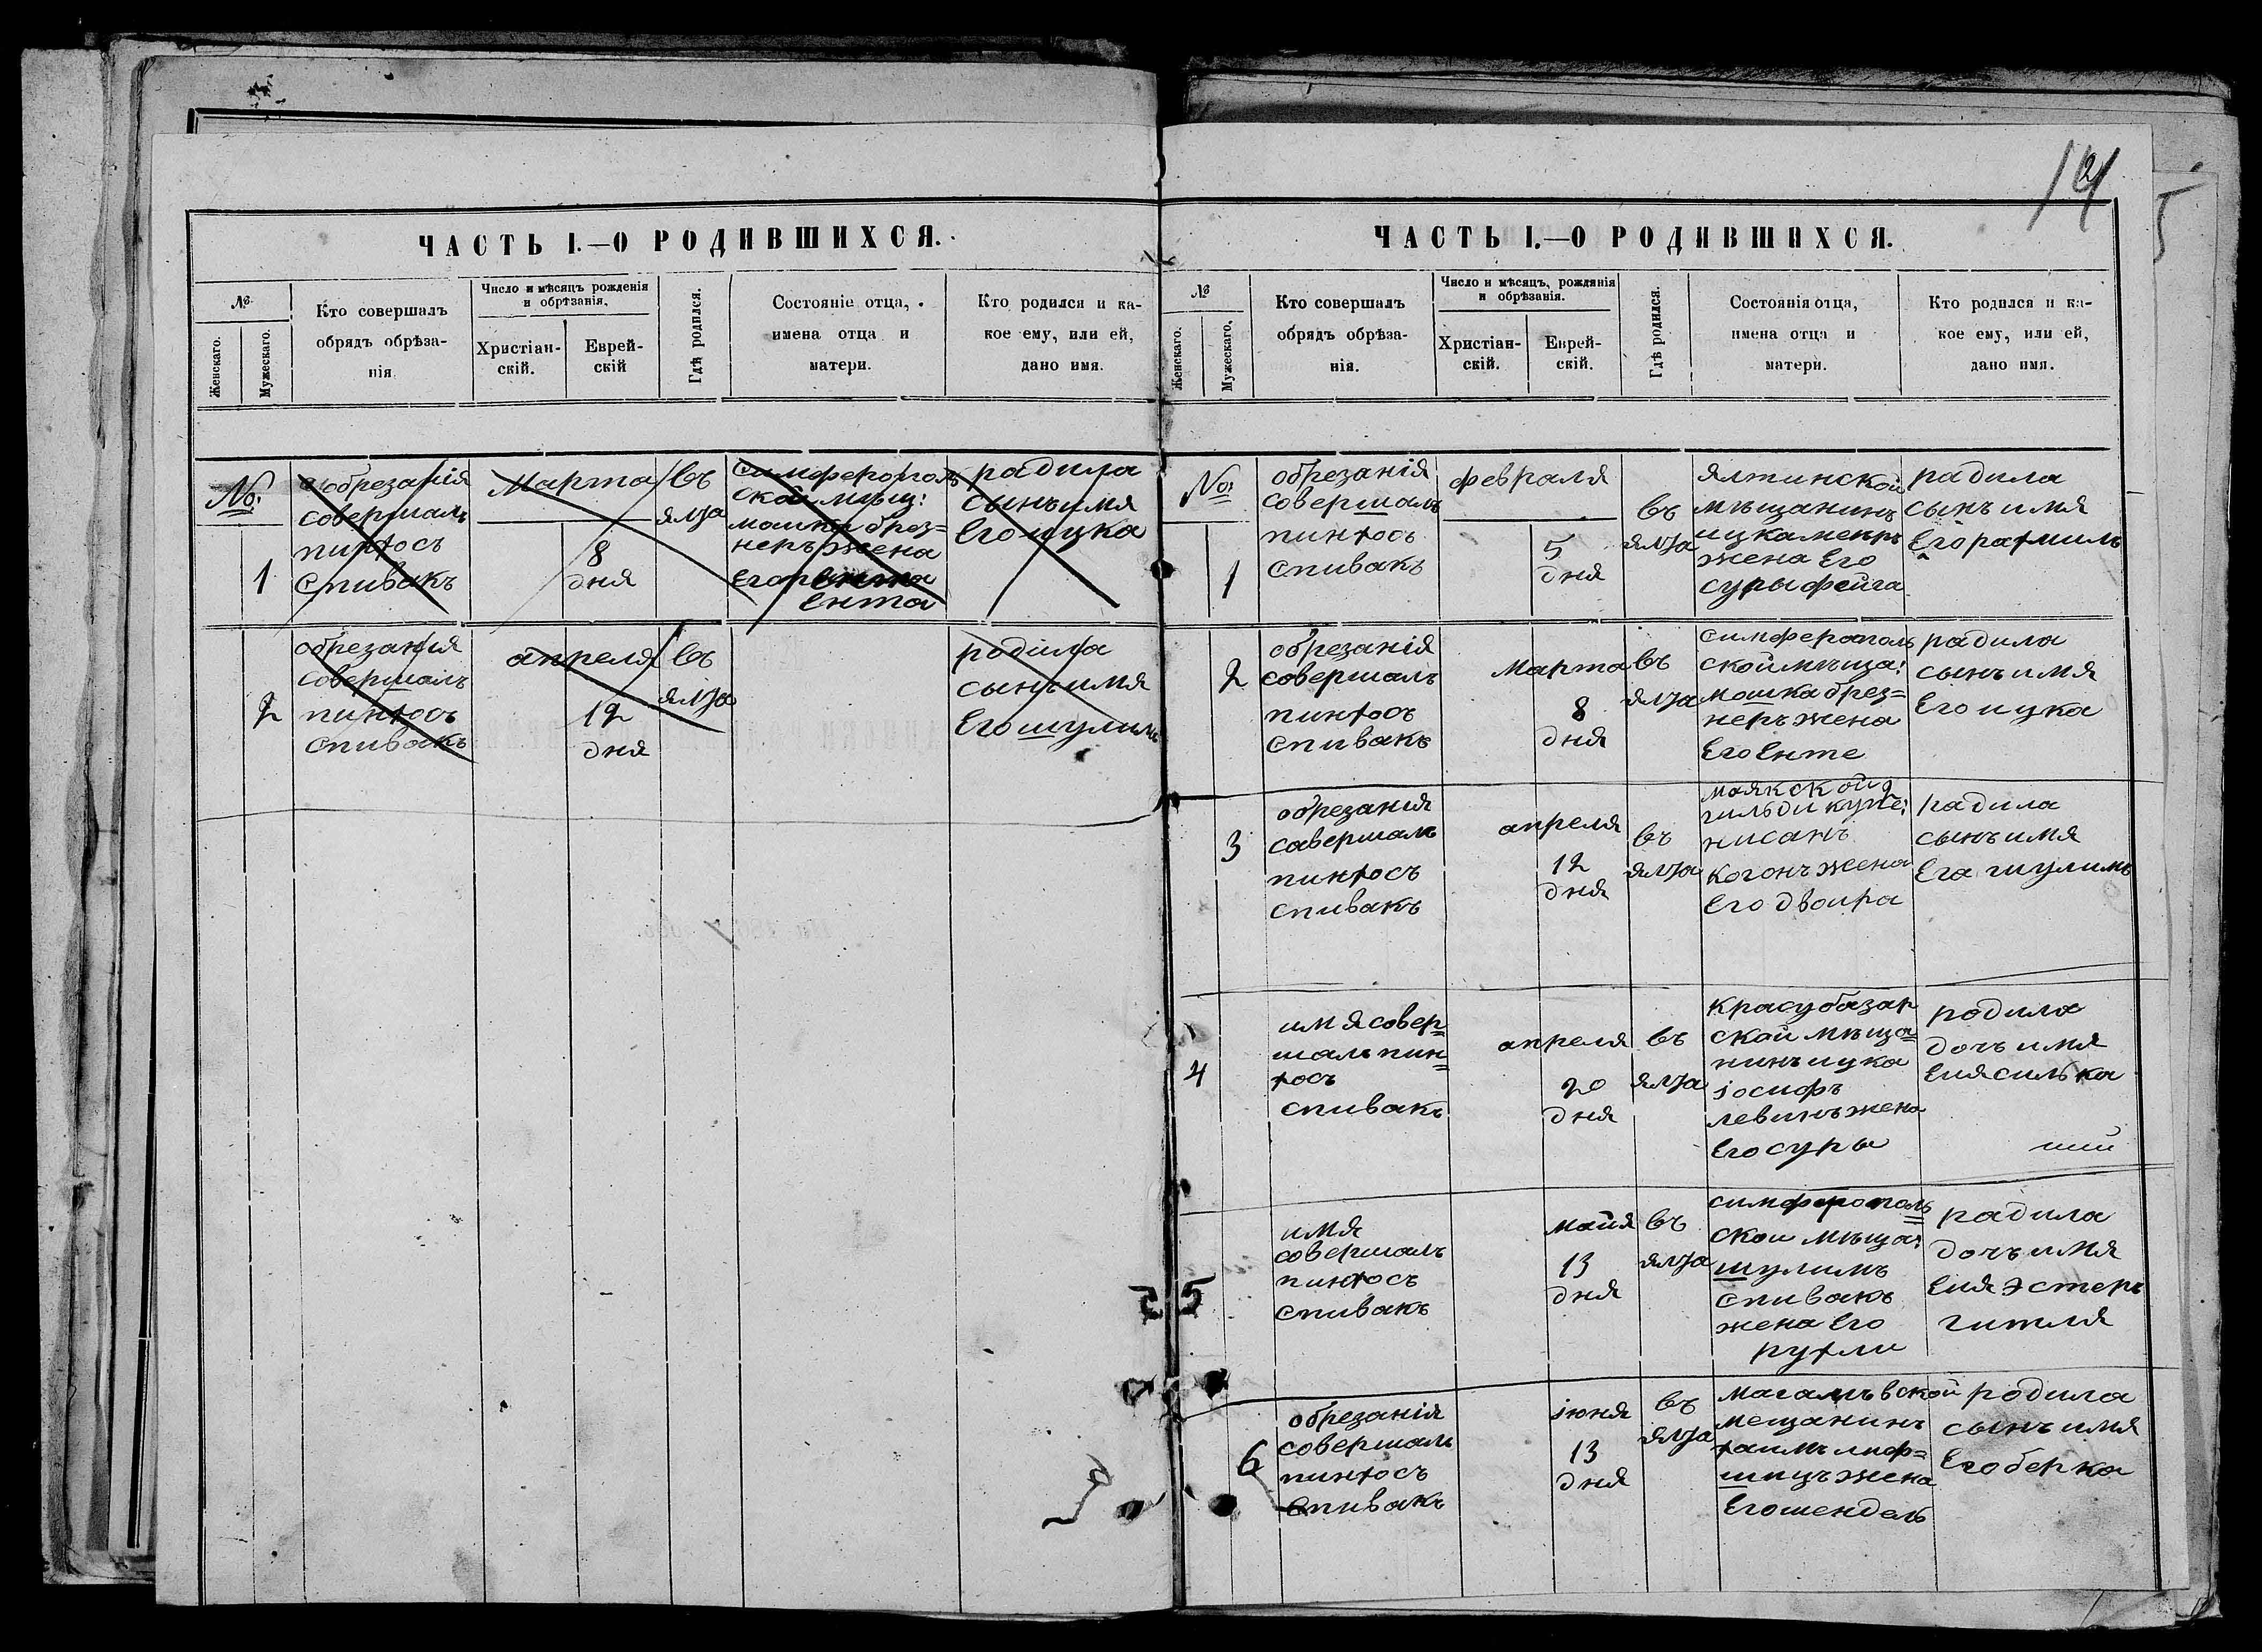 ЧАСТЬ I.—О РОДИВШИХСЯ.
№
Женскаго.
Мужескаго.
Кто совершалъ
обрядъ обрѣза-
нія
Число и мѣсяцъ рожденія
и обрѣзанія.
Христіан-
скій.
Еврей-
скій
Гдѣ родился.
Состояніе отца,
имена отца и
матери.
Кто родился и ка-
кое ему, или ей,
дано имя.
№:
1
обрезанія
совершалъ
пинхосъ
спивакъ
марта
8
дня
въ
ялта
симферополь
ской мѣщ:
мошка брез=
неръ жена
его
ента
радила
сынъ имя
Его ицка
2
обрезания
совершалъ
пинхосъ
спивакъ
апреля
12
дня
въ
ялта
родила
сынъ имя
Его шулимъ
14
ЧАСТЬ I.—О РОДИВШИХСЯ.
№
Женскаго.
Мужескаго.
Кто совершалъ
обрядъ обрѣза-
нія.
Число и мѣсяцъ, рождянія
и обрѣзанія.
Христіан-
скій.
Еврей-
скій.
Гдѣ родился.
Состоянія отца,
имена отца и
матери.
Кто родился и ка-
кое ему, или ей,
дано имя.
№:
1
обрезанія
совершалъ
пинхосъ
спивакъ
февраля
5
дня
въ
ялта
ялтинской
мѣщанинъ
жена Его
суры фейга
радила
сынъ имя
Его рахмиль
2
обрезанія
совершалъ
пинхосъ
спивакъ
марта
8
дня
въ
ялта
симферополь
ской мѣща:
мошка брез=
неръ жена
Его Енте
радила
сынъ имя
Его ицка
3
обрезания
савершалъ
пинхосъ
спивакъ
апреля
12
дня
въ
ялта
маякской 2
гильди купе:
нисанъ
когонъ жена
Его двоира
радила
сынъ имя
Его шулимъ
4
имя совер=
шалъ пин=
хосъ
спивакъ
апреля
20
дня
въ
ялта
красубазар
ской мѣща=
нинъ ицка
іосифъ
левинъ жена
Его суры
родила
дочь имя
Ейя силька
5
имя
совершалъ
пинхосъ
спивакъ
майя
13
дня
въ
ялта
симферополь=
ской мѣща:
шулимъ
спивакъ
жена Его
рухли
радила
дочь имя
Ейя эстеръ
гитля
6
обрезанія
совершалъ
пинхосъ
спивакъ
іюня
13
дня
въ
ялта
мещанинъ
хаимъ лиф=
шицъ жена
Его шендель
родила
сынъ имя
Его берка